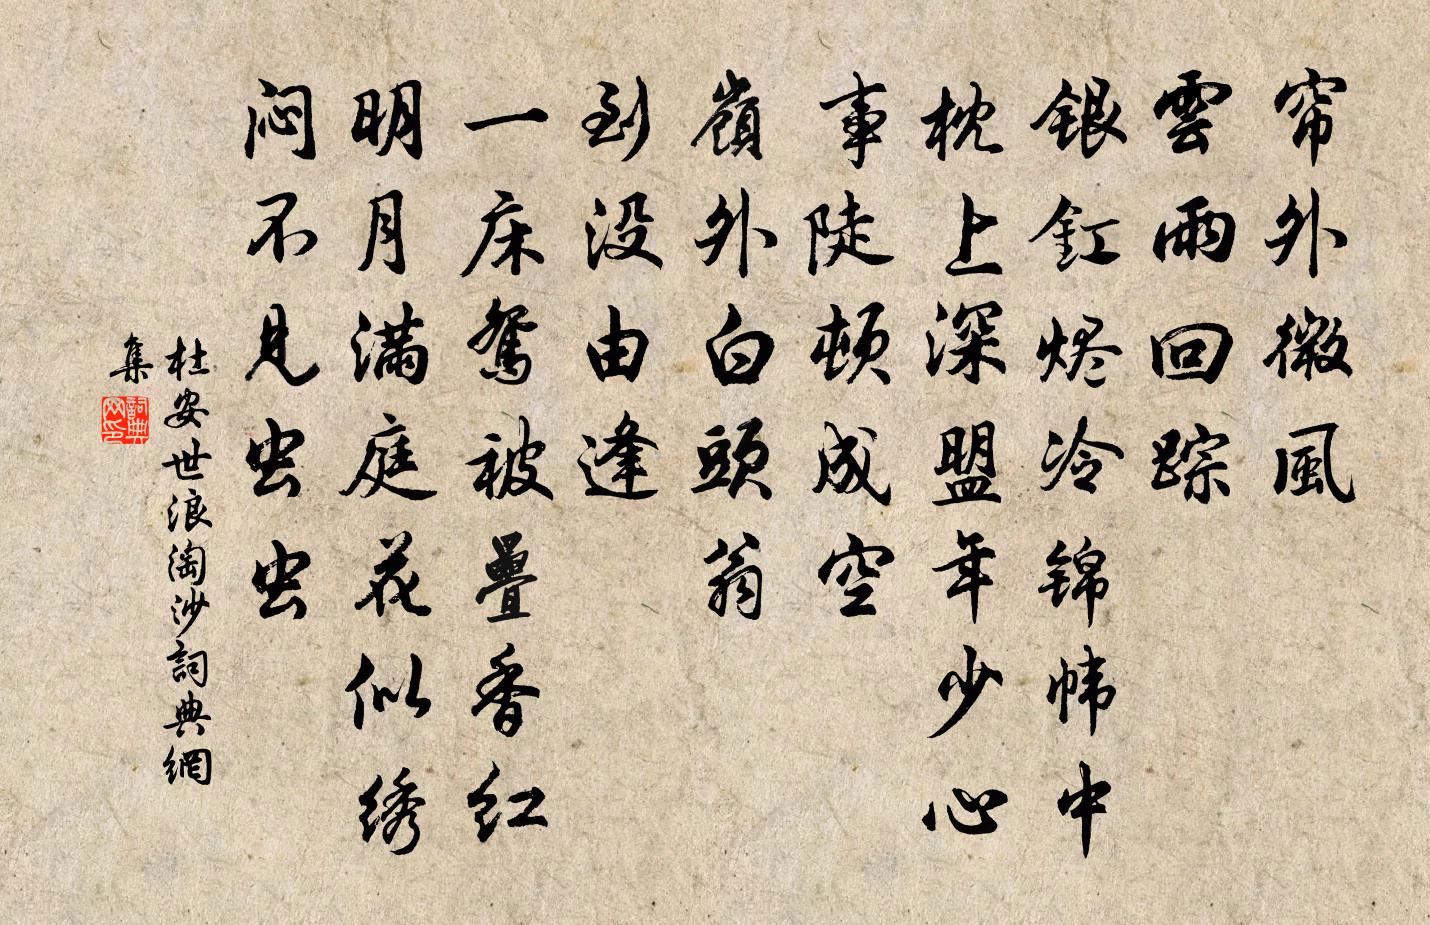 帘外微風
雲雨回踪
銀釭烬冷锦帏中
枕上深盟年少心
事陡頓成空
嶺外白頭翁
到没由逢
一床鸳被疊香红
明月满庭花似绣
闷不見虫虫
杜安世浪淘沙詞典網
集
詞典
网印